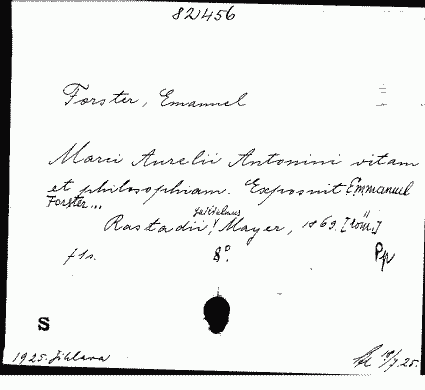 82/456
Forster, Emanuel
Marci Aurelii Antonini vitam
et philosophiam. Exposuit Emmanuel
Forster...
Rastadii, Mayer, 1869.
f 1s. 8°. Pp
S
1925. Jihlava 25.